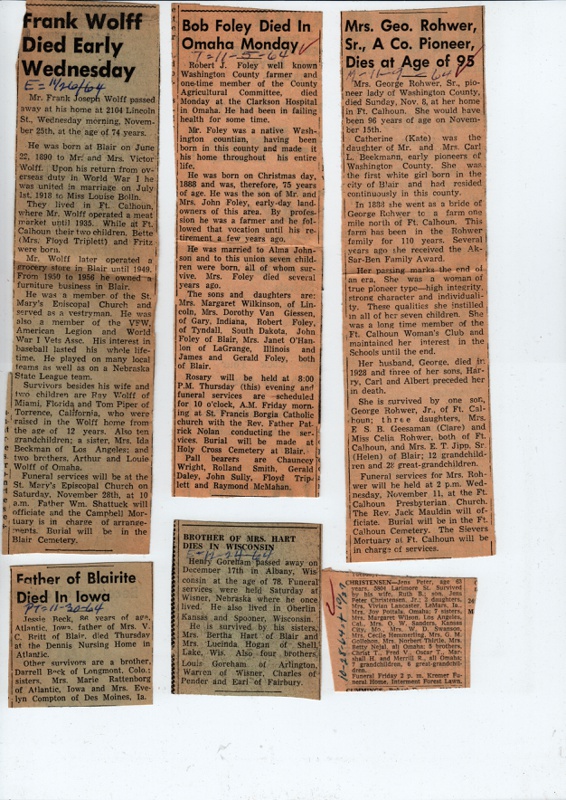 Frank Wolff
Died Early
Wednesday
E = 11/26/64
Mr. Frank Joseph Wolff passed
away at his home at 2104 Lincoln
St., Wednesday morning, November
25th, at the age of 74 years.
He was born at Blair on June
22, 1890 to Mr. and Mrs. Victor
Wolff. Upon his return from ov-
erseas duty in World War I he
was united in marriage on July
1st, 1918 to Miss Louise Bolln.
They lived in Ft. Calhoun,
where Mr. Wolff operated a meat
market until 1935. While at Ft.
Calhoun their two children, Bette
(Mrs. Floyd Triplett) and Fritz
were born.
Mr. Wolff later operated a
grocery store in Blair until 1949.
From 1950 to 1956 he owned a
furniture business in Blair.
He was a member of the St.
Mary's Episcopal Church and
served as a vestryman. He was
also a member of the VFW,
American Legion and World
War I Vets Assc. His interest in
baseball lasted his whole life-
time. He played on many local
teams as well as on a Nebraska
State League team.
Survivors besides his wife and
two children are Ray Wolff of
Miami, Florida and Tom Piper of
Torrence, California, who were
raised in the Wolff home from
the age of 12 years. Also ten
grandchildren; a sister, Mrs. Ida
Beckman of Los Angeles; and
two brothers, Arthur and Louie
Wolff of Omaha.
Funeral services will be at the
St. Mary's Episcopal Church on
Saturday, November 28th, at 10
a.m. Father Wm. Shattuck will
officiate and the Campbell Mor-
tuary is in charge of arrange-
ments. Burial will be in the
Blair Cemetery.
Bob Foley Died In
Omaha Monday
11-5-64
Robert J. Foley well known
Washington County farmer and
one-time member of the County
Agricultural Committee, died
Monday at the Clarkson Hospital
in Omaha. He had been in failing
health for some time.
Mr. Foley was a native Wash-
ington countian, having been
born in this county and made it
his home throughout his entire
life.
He was born on Christmas day,
1888 and was, therefore, 75 years
of age. He was the son of Mr. and
Mrs. John Foley, early-day land-
owners of this area. By profes-
sion he was a farmer and he fol-
lowed that vocation until his re-
tirement a few years ago.
He was married to Alma John-
son and to this union seven child-
ren were born, all of whom sur-
vive. Mrs. Foley died several
years ago.
The sons and daughters are:
Mrs. Margaret Wilkinson, of Lin-
coln, Mrs. Dorothy Van Giessen,
of Gary, Indiana, Robert Foley,
of Tyndall, South Dakota, John
Foley of Blair, Mrs. Janet O'Han-
lon of LaGrange, Illinois and
James and Gerald Foley, both
of Blair.
Rosary will be held at 8:00
P.M. Thursday (this) evening and
funeral services are scheduled
for 10 o'clock, A.M. Friday morn-
ing at St. Francis Borgia Catholic
church with the Rev. Father Pat-
rick Nolan conducting the ser-
vices. Burial will be made at
Holy Cross Cemetery at Blair.
Pall bearers are Chauncey
Wright, Rolland Smith, Gerald
Daley, John Sully, Floyd Trip-
lett and Raymond McMahan.
Mrs. Geo. Rohwer,
Sr., A Co. Pioneer,
Dies at Age of 95
Mrs. George Rohwer, Sr., pio-
neer lady of Washington County,
died Sunday, Nov. 8, at her home
in Ft. Calhoun. She would have
been 96 years of age on November
15th.
Catherine (Kate) was the
daughter of Mr. and Mrs. Carl
L. Beekmann, early pioneers of
Washington County. She was
the first white girl born in the
city of Blair and had resided
continuously in this county.
In 1888 she went as a bride of
George Rohwer to a farm one
mile north of Ft. Calhoun. This
farm has been in the Rohwer
family for 110 years. Several
years ago she received the Ak-
Sar-Ben Family Award.
Her passing marks the end of
an era. She was a woman of
true pioneer type—high integrity,
strong character and individuali-
ty. These qualities she instilled
in all of her seven children. She
was a long time member of the
Ft. Calhoun Woman's Club and
maintained her interest in the
Schools until the end.
Her husband, George, died in
1928 and three of her sons, Har-
ry, Carl and Albert preceded her
in death.
She is survived by one son,
George Rohwer, Jr., of Ft. Cal-
houn; three daughters, Mrs.
E. S. B. Geesaman (Clare) and
Miss Celia Rohwer, both of Ft.
Calhoun, and Mrs. E. T. Jipp. Sr.
(Helen) of Blair; 12 grandchild-
ren and 28 great-grandchildren.
Funeral services for Mrs. Roh-
wer will be held at 2 p.m. Wed-
nesday, November 11, at the Ft.
Calhoun Presbyterian Church.
The Rev. Jack Mauldin will of-
ficiate. Burial will be in the Ft.
Calhoun Cemetery. The Sievers
Mortuary at Ft. Calhoun will be
in charge of services.
Father of Blairite
Died In Iowa
PT=11-30-64
Jessie Beck, 86 years of age,
Atlantic, Iowa, father of Mrs. V.
C. Britt of Blair, died Thursday
at the Dennis Nursing Home in
Atlantic.
Other survivors are a brother,
Darrell Beck of Longmont, Colo.;
sisters, Mrs. Marie Rattenborg
of Atlantic, Iowa and Mrs. Eve-
lyn Compton of Des Moines, Ia.
BROTHER OF MRS. HART
DIES IN WISCONSIN
Henry Goreham passed away on
December 17th in Albany, Wis-
consin at the age of 78. Funeral
services were held Saturday at
Wisner, Nebraska where he once
lived. He also lived in Oberlin
Kansas and Spooner, Wisconsin.
He is survived by his sisters,
Mrs. Bertha Hart of Blair and
Mrs. Lucinda Hogan of Shell
Lake, Wis. Also four brothers,
Louis Goreham of Arlington,
Warren of Wisner, Charles of
Pender and Earl of Fairbury.
CHRISTENSEN—Jens Peter, age 63
years, 5804 Larimore St. Survived
by his wife, Ruth B., son, Jens
Peter Christensen, Jr.; 2 daughters,
Mrs. Vivian Lancaster, LaMars, Ia.,
Mrs. Joy Botala, Omaha; 7 sisters,
Mrs. Margaret Wilson, Los Angeles,
Cal., Mrs. O. W. Sanders, Kansas
City, Mo., Mrs. W. D. Sorensen,
Mrs. Cecile Hemmerling, Mrs. G. M.
Gollehon, Mrs. Norbert Thirtle, Mrs.
Betty Nejal, all Omaha; 5 brothers,
Christ T., Fred V., Oscar T., Mar-
shall H. and Merrill R., all Omaha;
7 grandchildren, 6 great-grandchil-
dren.
Funeral Friday 2 p. m. Kremer Fu-
neral Home, Interment Forest Lawn.